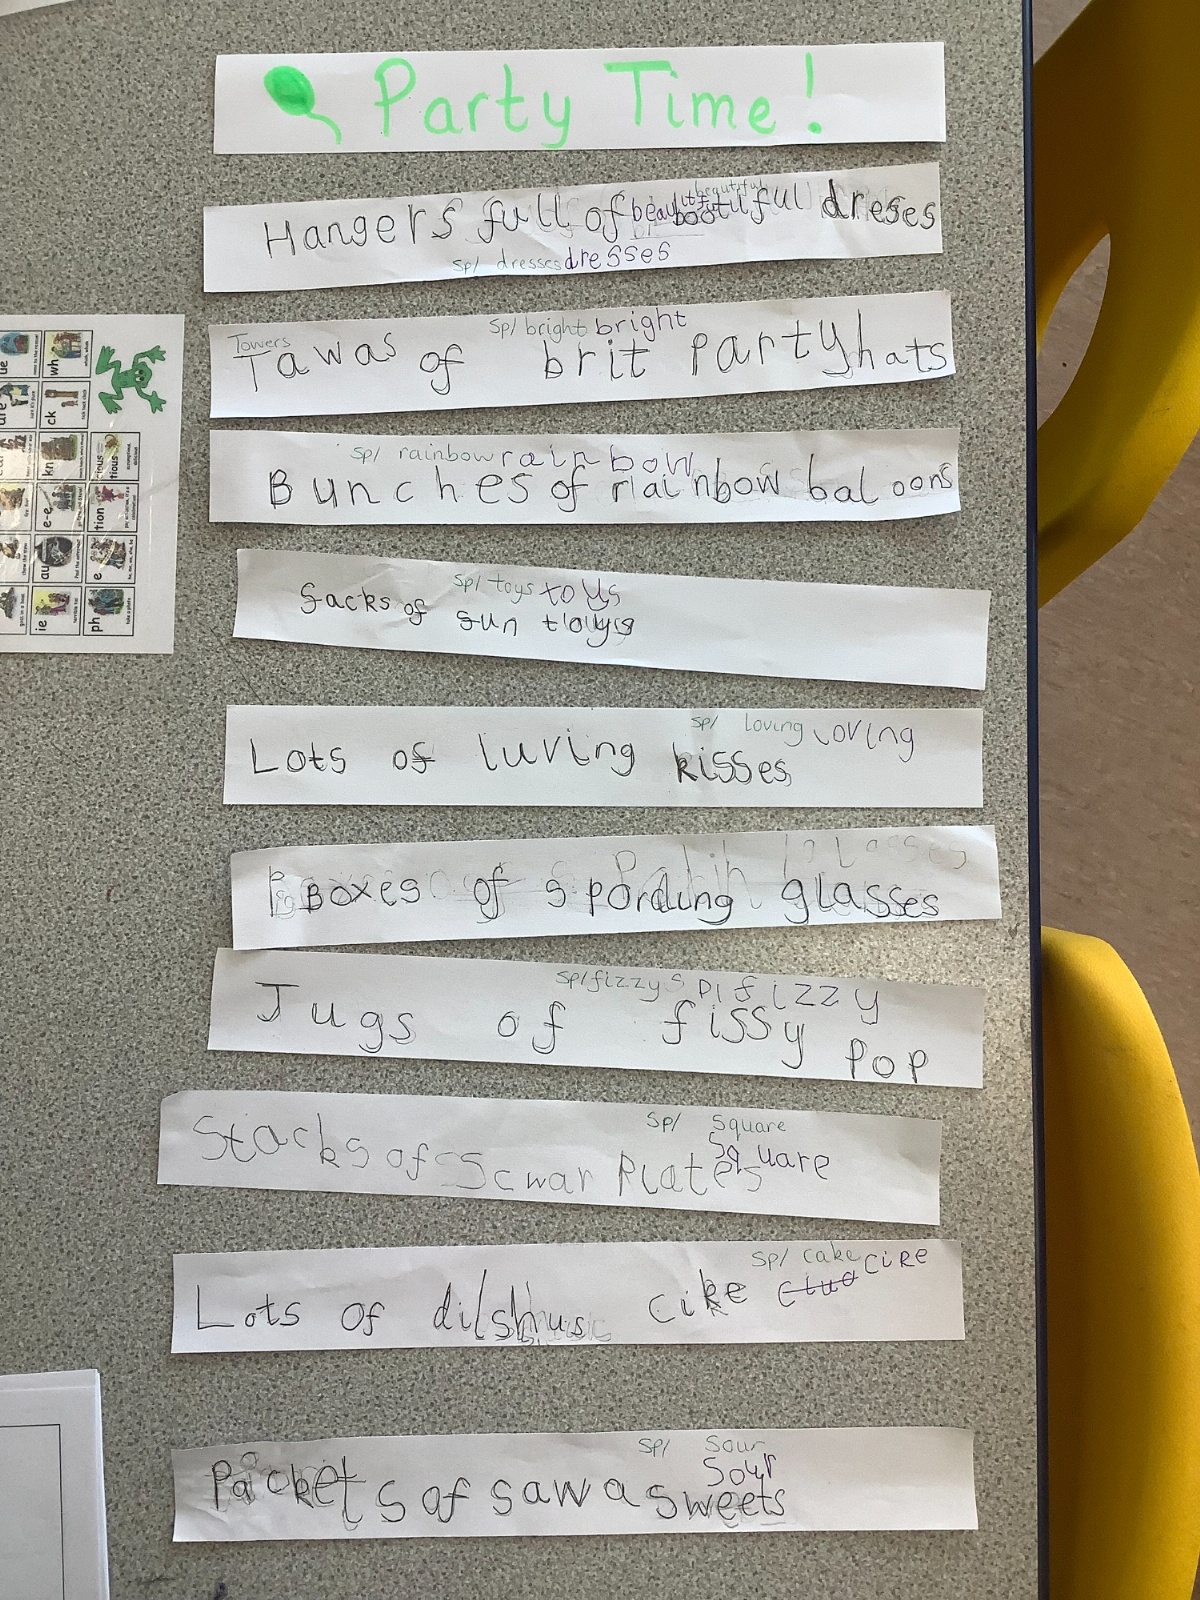 Party Time!
beautiful
Hangers full of beautiful dreses
sp/ dresses dresses
Towers sp/ bright bright
Tawas of brit party hats
sp/ rainbow rainbow
Bunches of rainbow baloons
sp/ toys toys
Sacks of fun toys
sp/ loving loving
Lots of luving kisses
Boxes of spording glasses
sp/ fizzy sp/ fizzy
Jugs of fissy pop
sp/ square
square
Stacks of Scwar Plates
sp/ cake cike
Lots of dilshus cike
sp/ sour
sour
Packets of sawa sweets
ue
wh
ck
kn
e-e
tion
au
e
ie
ph